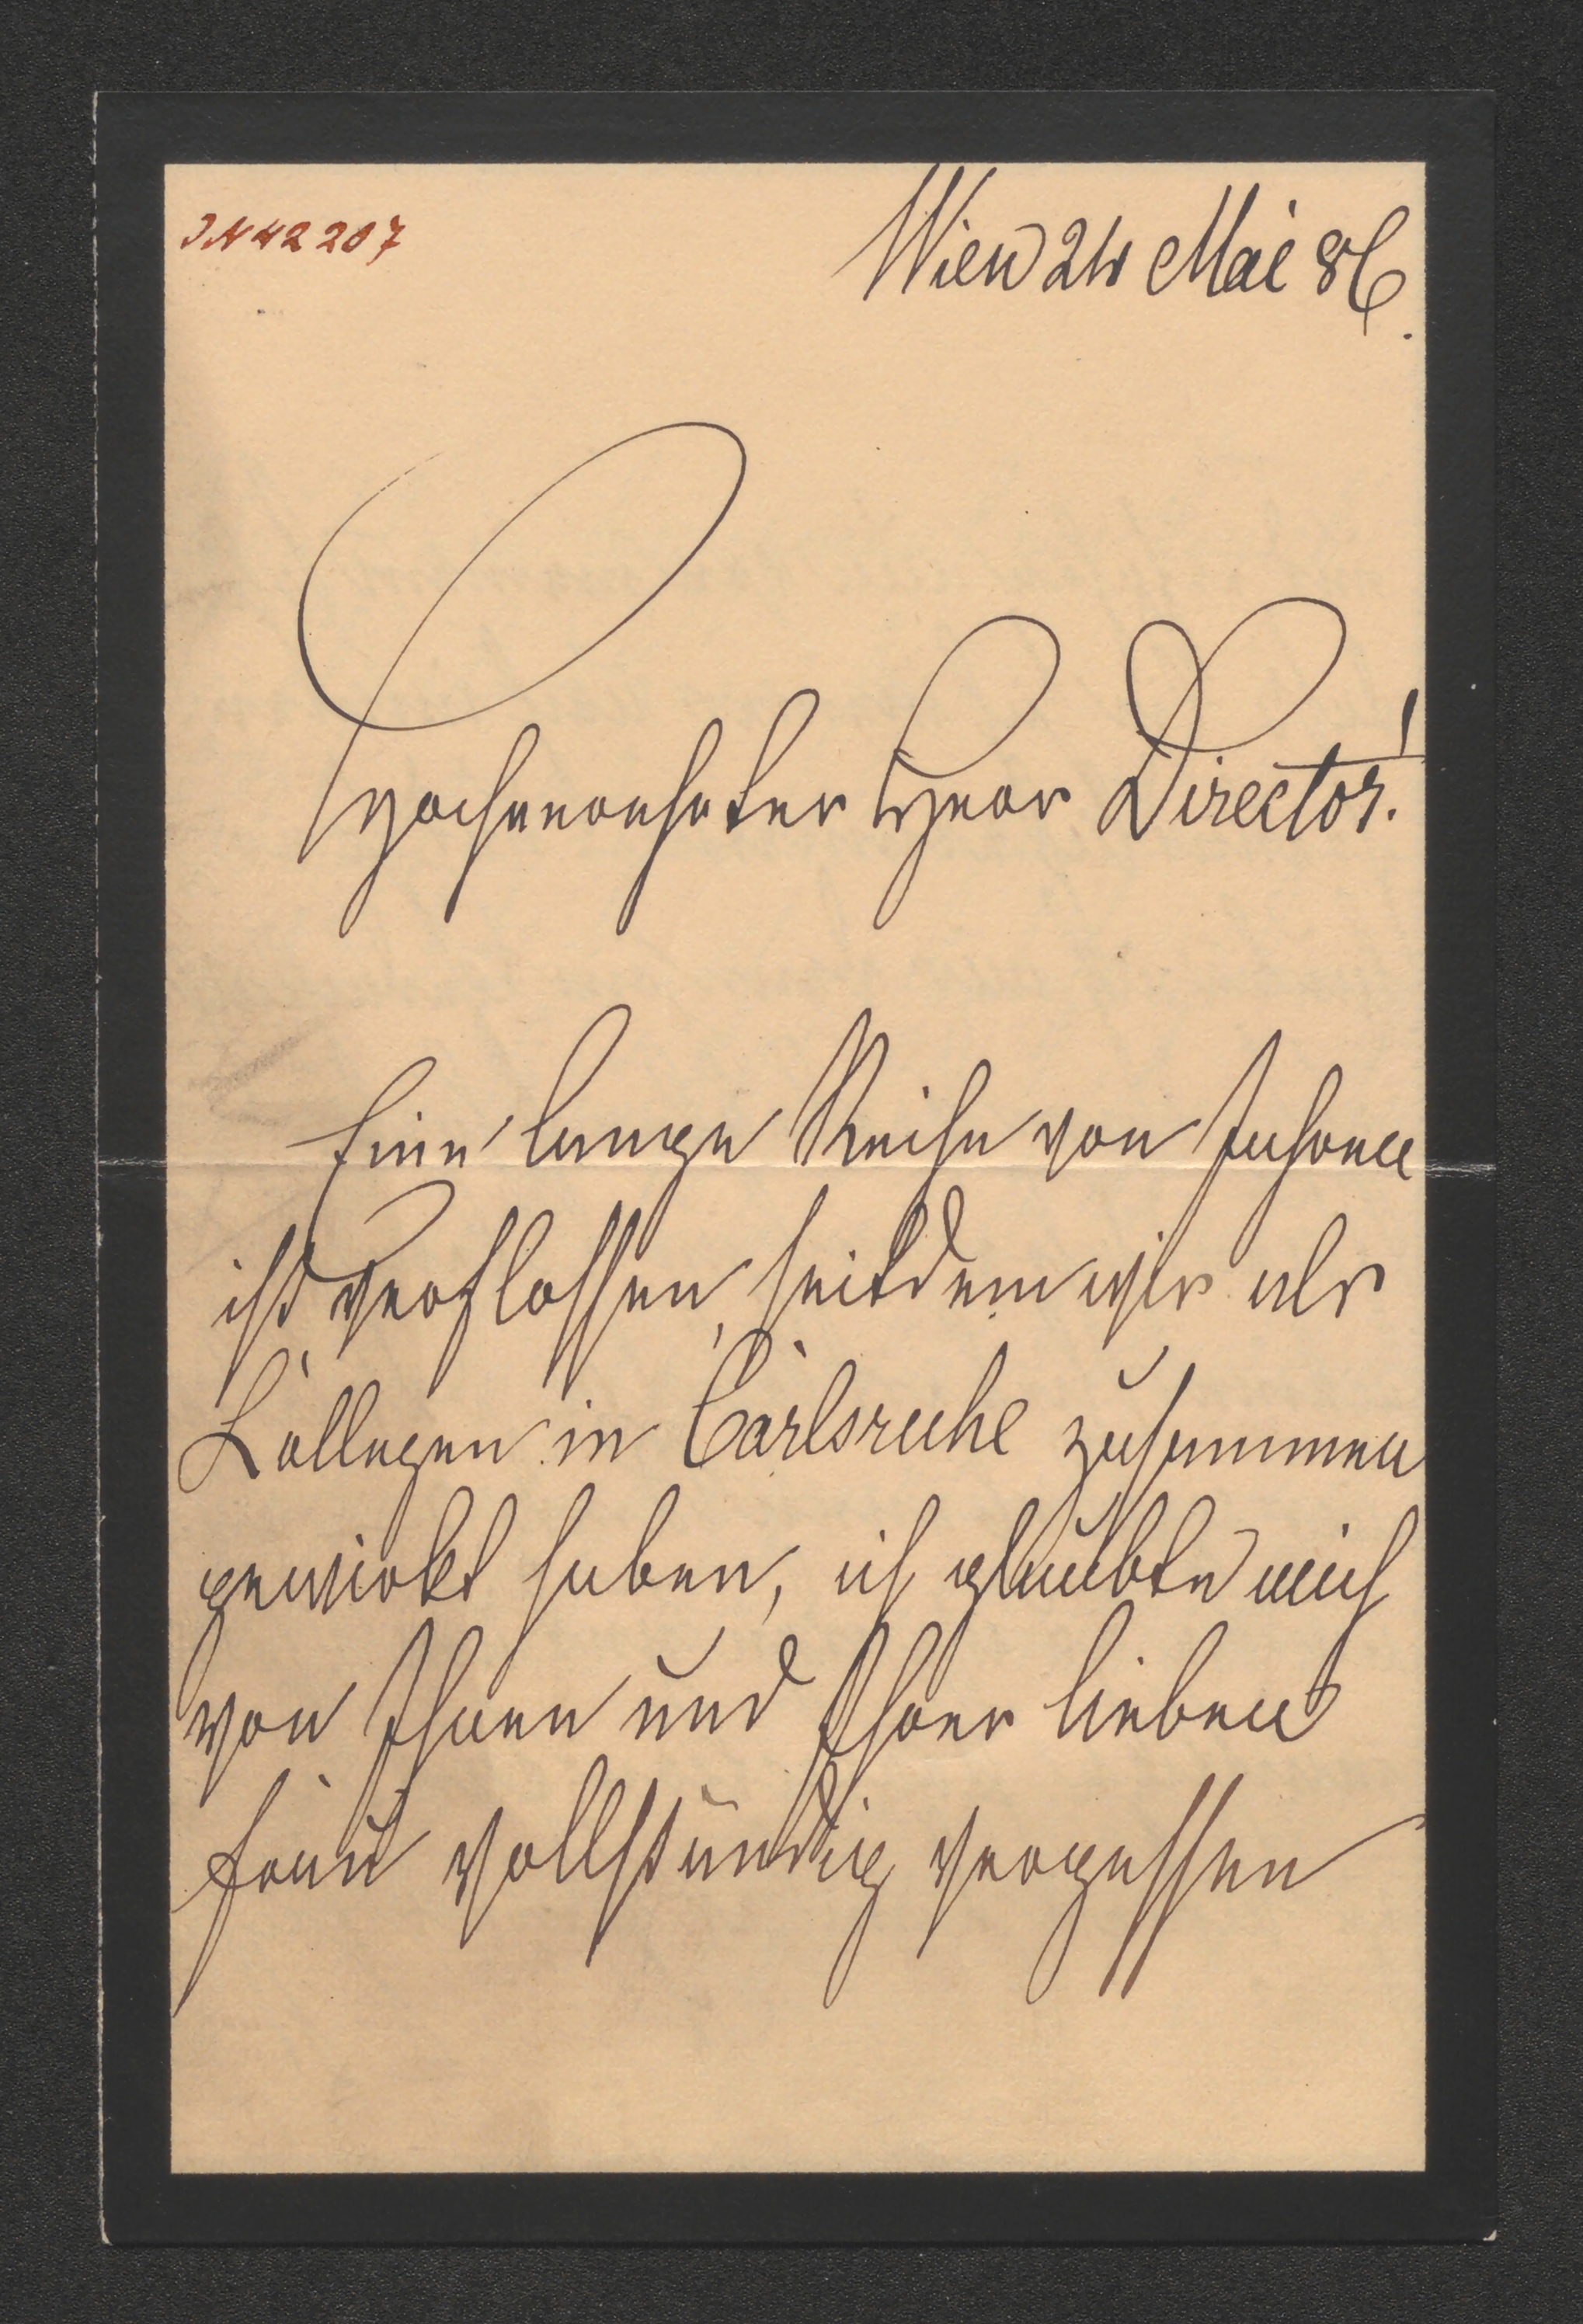 IN 42207
Wien 24 Mai 86.
Hochverehrter Herr Director!
Eine lange Reihe von Jahren
ist verflossen, seitdem wir als
Kollegen in Carlsruhe zusammen
gewirkt haben, ich glaubte mich
von Ihnen und Ihrer lieben
Frau vollständig vergessen